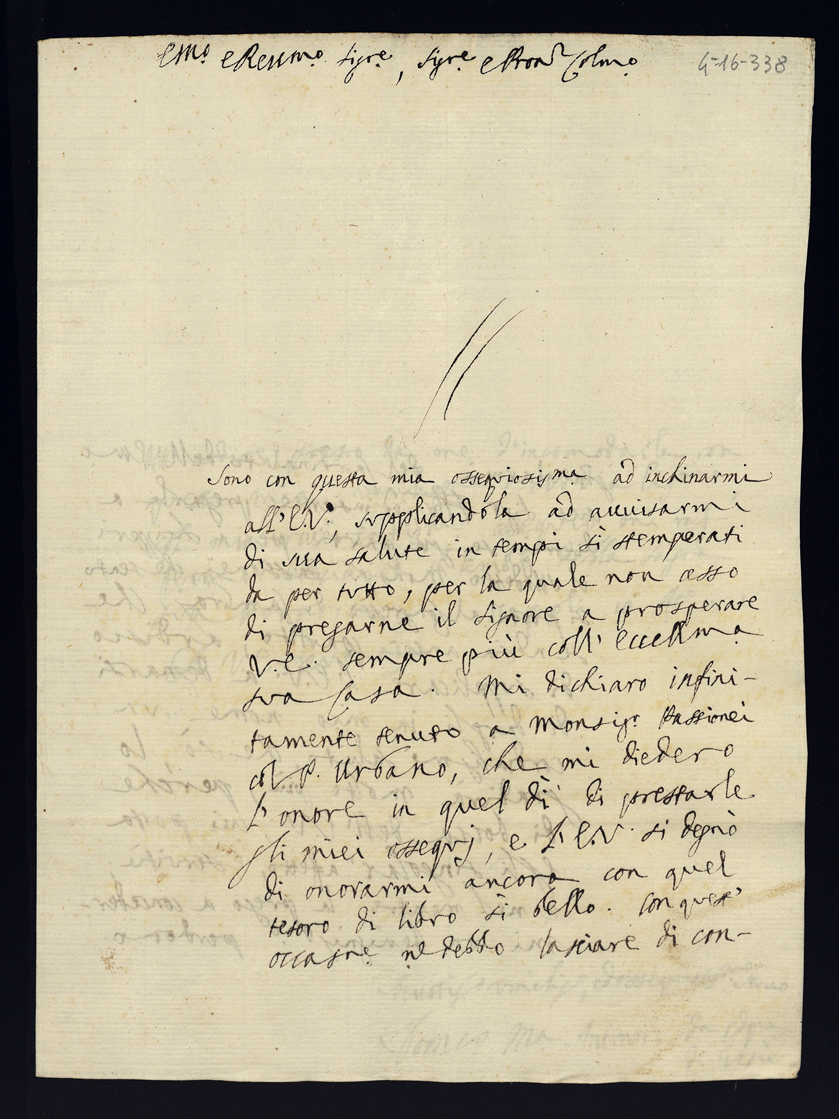 Emo e Revmo Sigre, Sigre e Pron Colmo
4-16-338
Sono con questa mia ossequiosisma ad inchinarmi
all'E.V., supplicandola ad avvisarmi
di sua salute in tempi sì stemperati
da per tutto, per la quale non cesso
di pregarne il Signore a prosperare
V.E. sempre più coll' eccellma
sua Casa. Mi dichiaro infini-
tamente tenuto a Monsigr Passionei
col P. Urbano, che mi diedero
l'onore in quel dì di prestarle
gli miei ossequj, e l'E.V. si degnò
di onorarmi ancora con quel
tesoro di libro sì bello. Con quest'
occasne nè debbo lasciare di con-